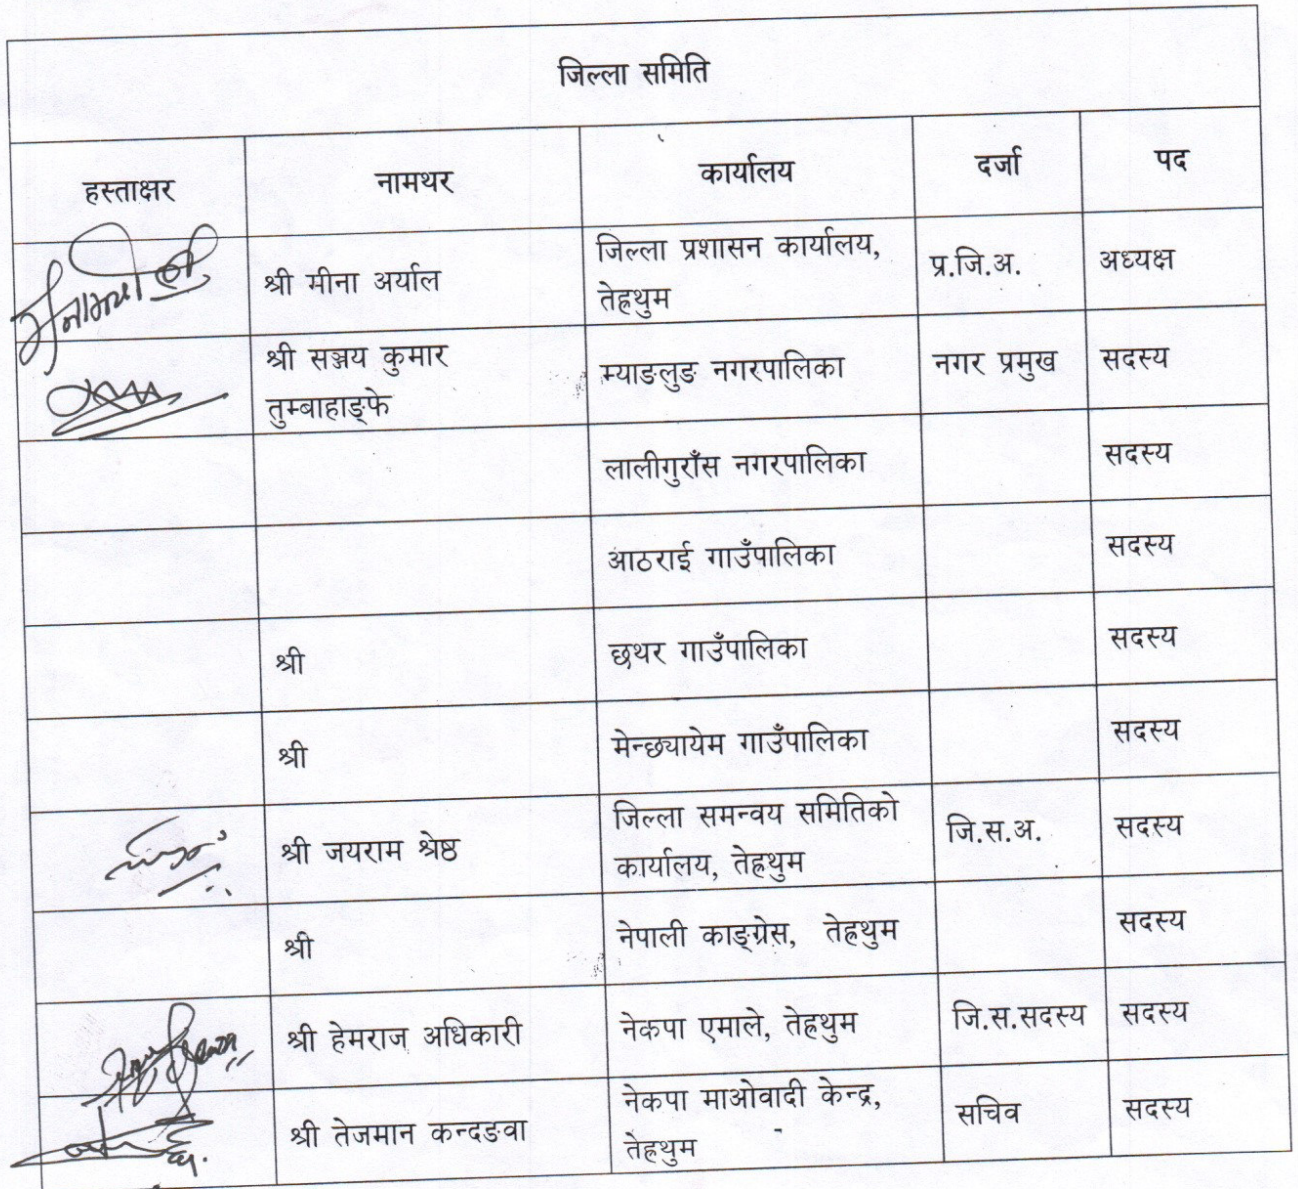 जिल्ला समिति
हस्ताक्षर नामथर कार्यालय दर्जा पद
श्री मीना अर्याल जिल्ला प्रशासन कार्यालय, तेह्रथुम प्र.जि.अ. अध्यक्ष
श्री सञ्जय कुमार तुम्बाहाङ्फे म्याङलुङ नगरपालिका नगर प्रमुख सदस्य
लालीगुराँस नगरपालिका सदस्य
आठराई गाउँपालिका सदस्य
श्री छथर गाउँपालिका सदस्य
श्री मेन्छ्यायेम गाउँपालिका सदस्य
श्री जयराम श्रेष्ठ जिल्ला समन्वय समितिको कार्यालय, तेह्रथुम जि.स.अ. सदस्य
श्री नेपाली काङ्ग्रेस, तेह्रथुम सदस्य
श्री हेमराज अधिकारी नेकपा एमाले, तेह्रथुम जि.स.सदस्य सदस्य
श्री तेजमान कन्दङवा नेकपा माओवादी केन्द्र, तेह्रथुम सचिव सदस्य